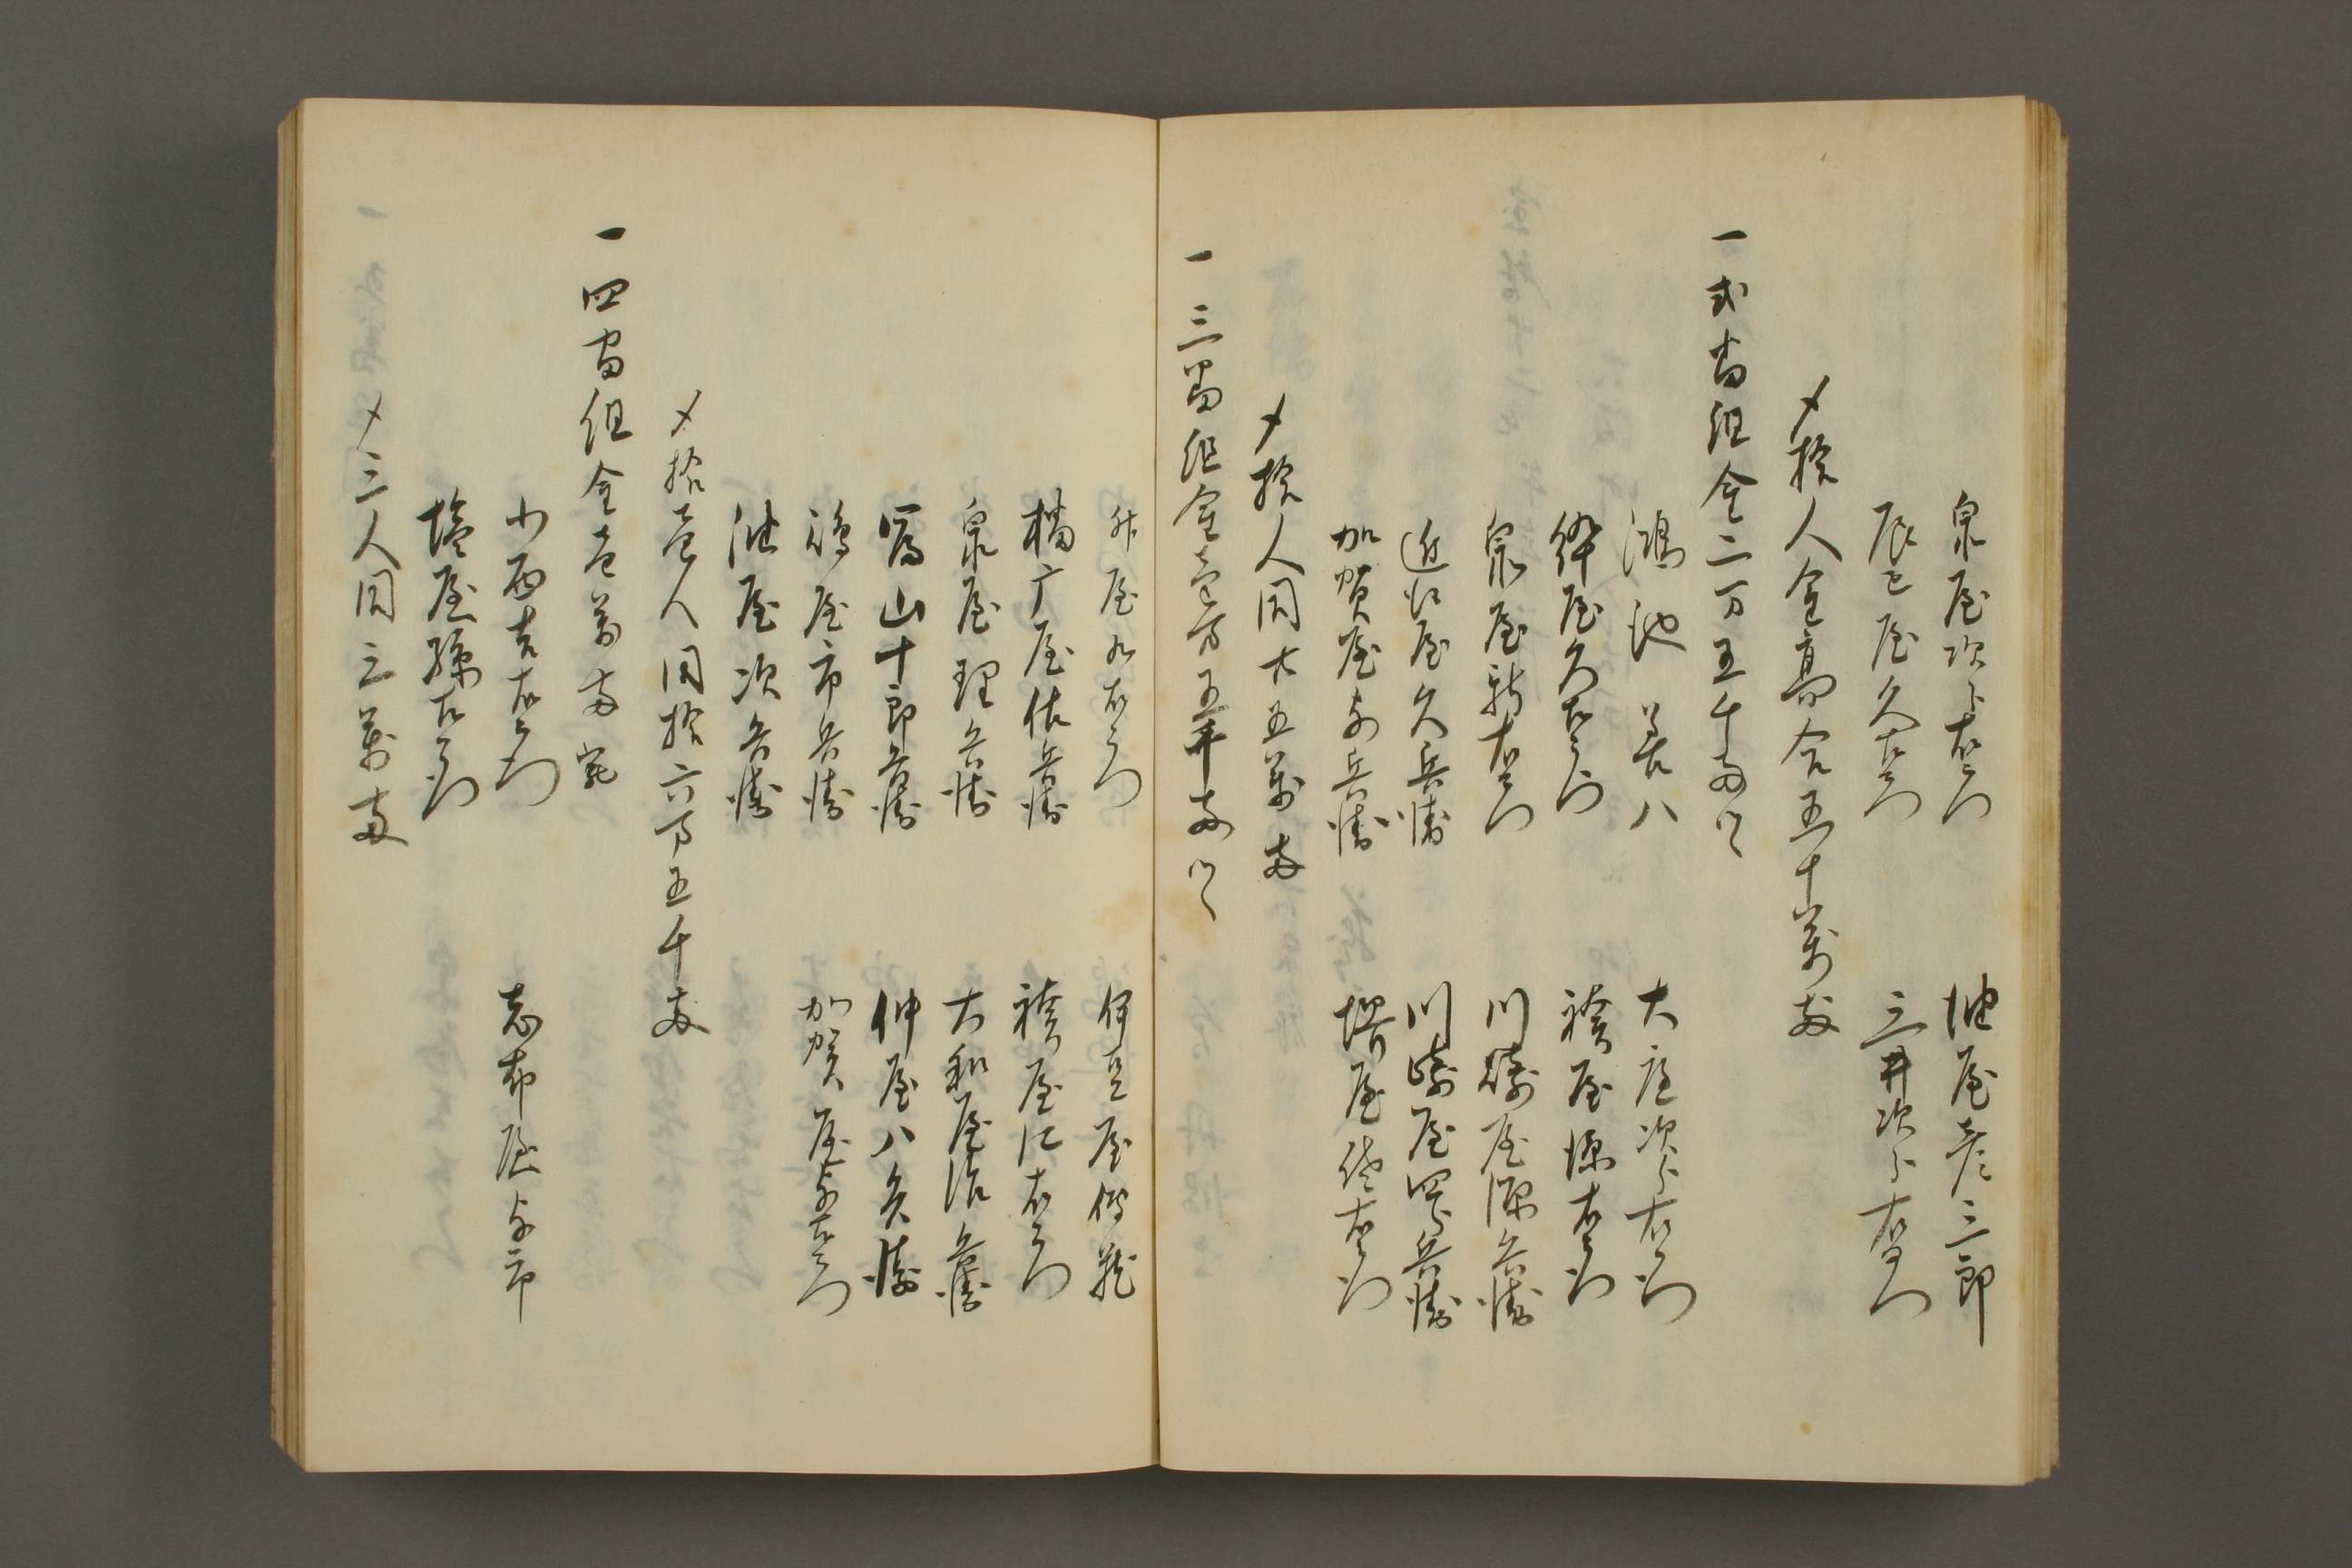 泉屋次郎右衛門
油屋彦三郎
辰巳屋久左衛門
三井次郎右衛門
〆拾人金高合五十萬両
一弐番組金二万五千両ツヽ
鴻池善八
大庭次郎右衛門
絆屋久右衛門
袴屋源右衛門
泉屋新右衛門
川崎屋源兵衛
近江屋久兵衛
川崎屋四郎兵衛
加賀屋与兵衛
堺屋佐右衛門
〆拾人同廿五萬両
一三番組金壱万五千両ツヽ
升屋九右衛門
伊豆屋傳蔵
播广屋佐兵衛
袴屋仁右衛門
泉屋理兵衛
大和屋治兵衛
富山十郎兵衛
仲屋八兵衛
鴻屋市兵衛
加賀屋与右衛門
油屋次兵衛
〆拾壱人同拾六万五千両
一四番組金壱萬両宛
小西吉右衛門
志布屋与市
塩屋孫左衛門
〆三人同三萬両